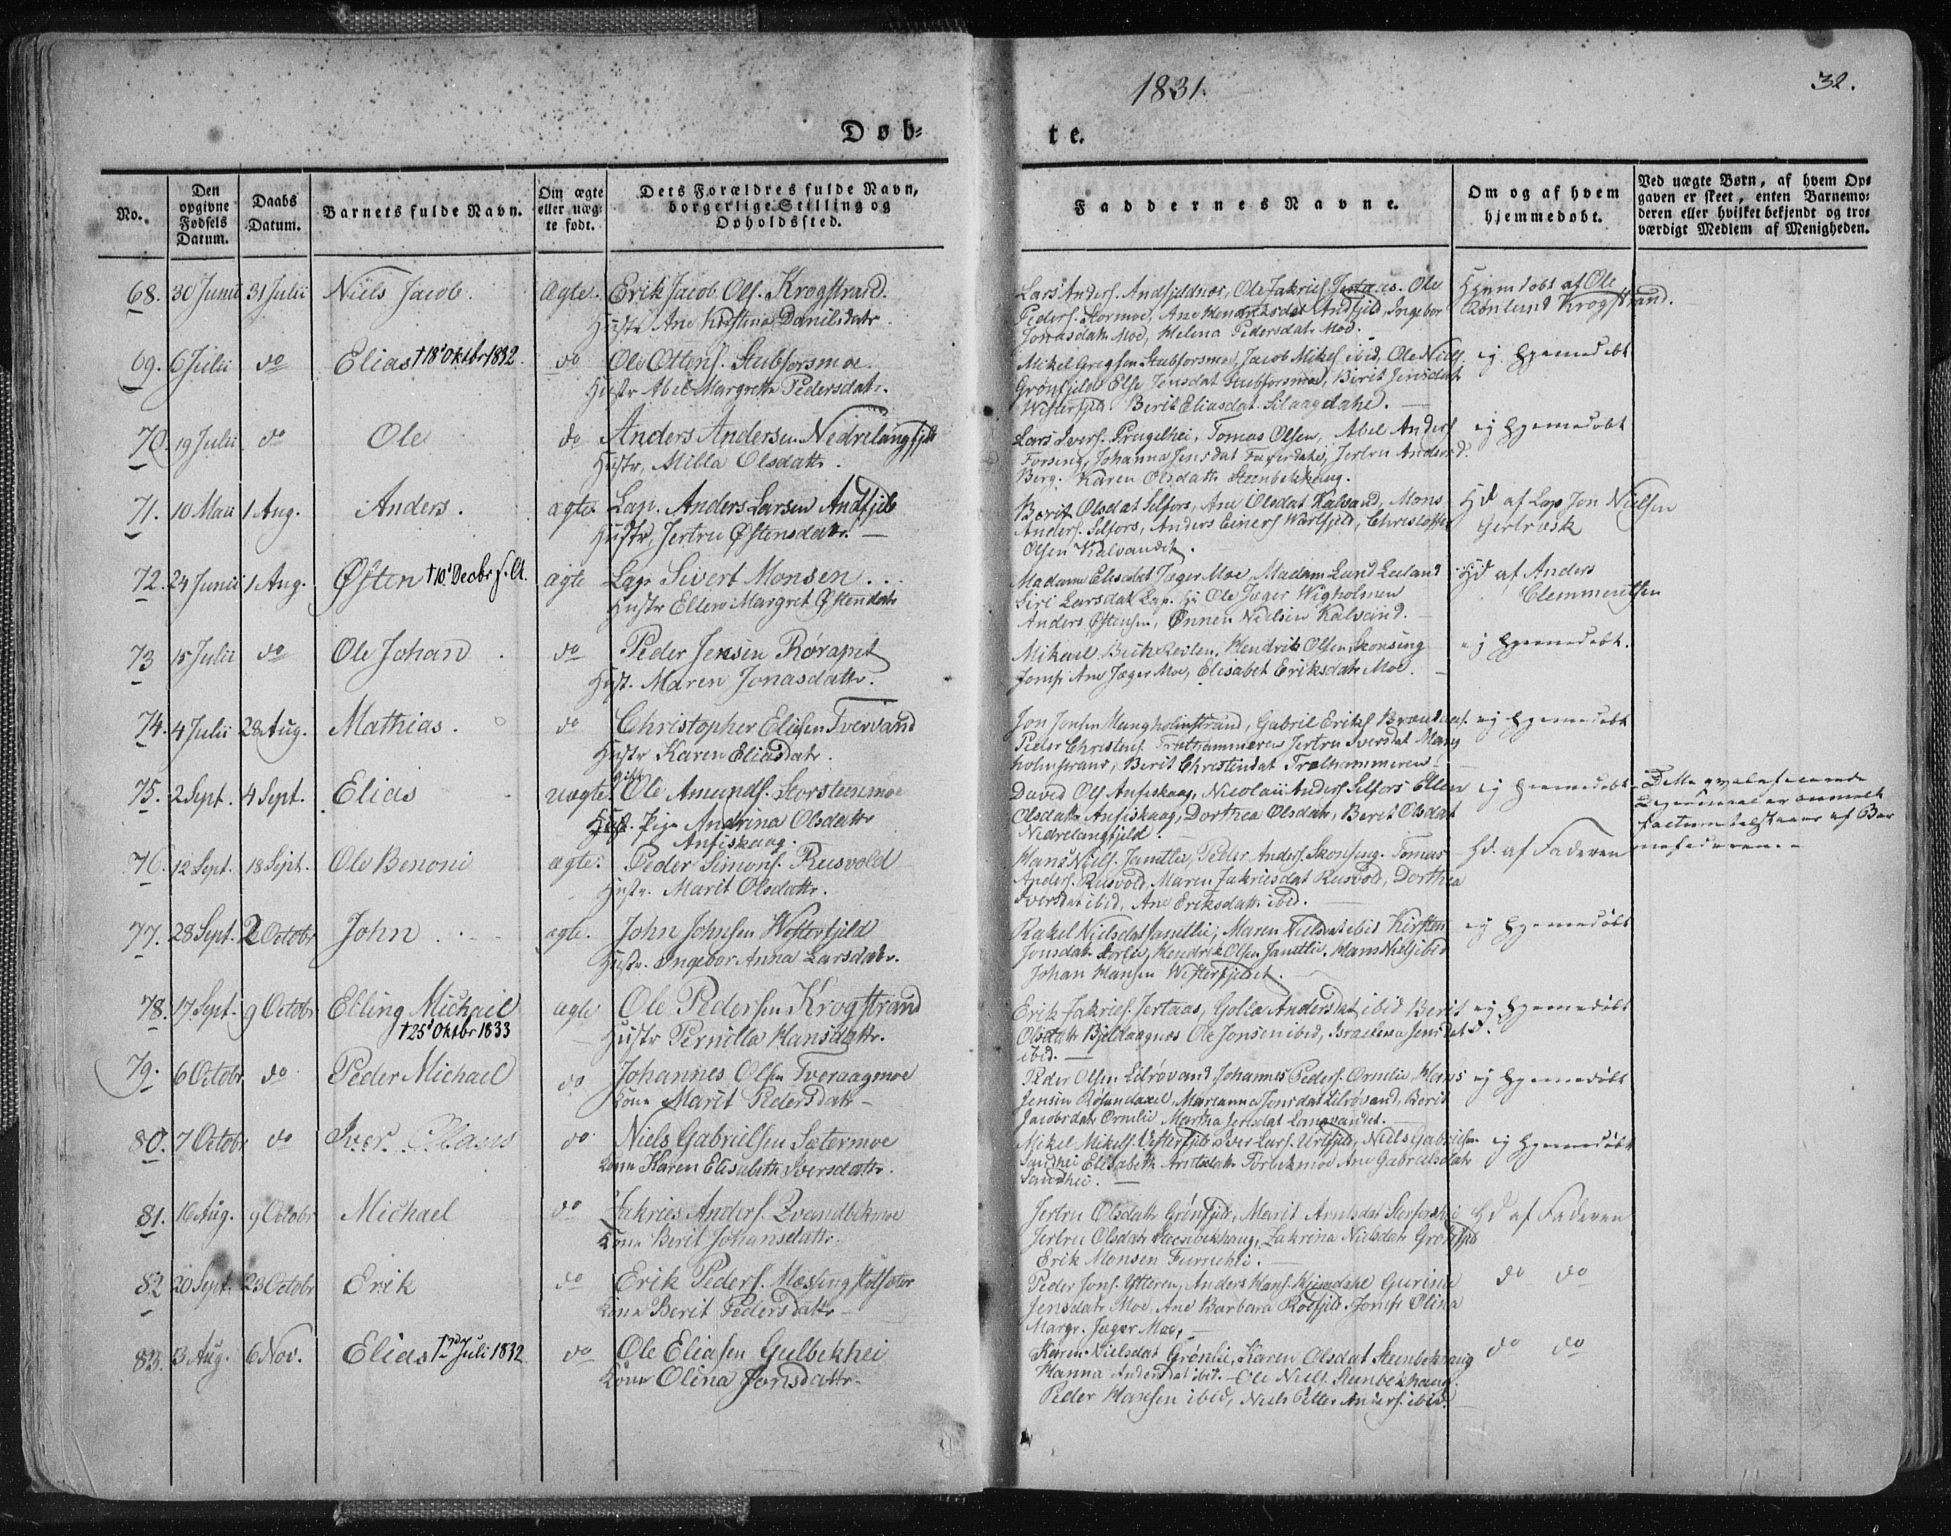 1831.
32.
Døb=
te.
No.
Den opgivne Fødsels Datum.
Daabs Datum.
Barnets fulde Navn.
Om ægte eller uæg- te født.
Dets Forældres fulde Navn, borgerlige Stilling og Opholdssted.
Faddernes Navne.
Om og af hvem hjemmedøbt.
Ved uægte Børn, af hvem Op- gaven er skeet, enten Barnemo- deren eller hvilket bekjendt og tro- værdigt Medlem af Menigheden.
68. 30 Junii 31 Julii Niels Jacob. Ægte. Erik Jacob Ols. Krogstrand.
Hustr Ane Kirstina Danilsdatr.
Lars Anders. Andfjeldnes, Ole Zakries. Jertaas. Ole
Peders. Stormoe, Ane Hendriksdat Andfjeld, Ingebor
Jonasdatr Moe, Helena Pedersdat. Moe.
Hjemdøbt af Ole
Krogstrand.
69. 6 Julii do Elias † 18' Oktbr 1832 do Ole Ottens. Stubforsmoe
Hustr Abel Margrette Pedersdatr.
Mikel Gregsen Stubforsmoe, Jacob Mikels. ibid, Ole Niels.
Grønfjeld, Else Jensdat Stubforsmoe, Berit Jensdat
Westerfjeld. Berit Eliasdat
ej hjemmedøbt
70. 19 Julii do Ole do Anders Andersen Nedrelangfjeld
Hustr, Milla Olsdattr.
Lars Ivers. Prugelhei, Tomas Olsen, Abel Anders
Forseng, Johanna Jensdat Jertru Andersd.
Berg. Karen Olsdattr Steenbekhaug.
ej hjemmedøbt
71. 10 Maii 1 Aug. Anders. ægte. Lap. Anders Larsen Andfjeld
Hustr, Jertru Østensdattr.
Berit Olsdat Selfors, Ane Olsdat Kalvand, Mons
Anders. Selfors, Anders Einers. Christoffer
Olsen Kalvandet.
Hd af Lap Jon Nielsen
72. 24 Junii 1 Aug. Østen † 10' Decbr s. A. ægte Lap Sivert Monsen.
Hustr Ellen Margret Østensdatr
Madam Elisabet Jæger Moe, Madam Lund
Siri Larsdat Lap. Ole Jæger Wigholmen
Anders Østensen, Ønnen Nielsen Kalvand.
Hd af Anders
Clemmentsen
73 15 Julii do Ole Johan do Peder Jensen Røraped
Hust. Maren Jonasdattr.
Mikael Hendrik Olsen Skonseng
Jomfr Ane Jæger Moe, Elisabet Eriksdatr Moe.
ej hjemmedøbt.
74. 4 Julii 28 Aug. Mathias. do Christopher Eliesen Tvervand
Hustr Karen Eliasdatr.
Jon Jonsen Gabriel Eriks.
Peder Christens. Trælhammeren Jertru Iversdat
Berit Christensdat Trælhammeren.
ej hjemmedøbt
75. 2 Sept. 4 Sept. Elias uægte. gift Ole Amunds. Storsteenmoe
Pige Andrina Olsdattr
Anfiskaag.
David Ols Anfiskaag, Nicolaii Anders Selfors Ellen
Olsdattr Anfiskaag, Dorthea Olsdatr, Berit Olsdat
Nedrelangfjeld.
ej hjemmedøbt
76. 12 Sept. 18 Sept. Ole Benoni ægte. Peder Simons. Rusvold
Hustr. Marit Olsdattr.
Hans Niels. Jamtlie, Peder Anders. Skonseng. Tomas
Anders. Rusvold, Maren Zakriesdat Rusvold, Dorthea
Iversdat ibid, Ane Eriksdattr. ibid.
Hd. af Faderen
77. 28 Sept. 2 Octobr John. ægte. John Johnsen Westerfjeld
Hustr. Ingebor Anna Larsdatr.
Rakel Nielsdat Jamtlie, Maren Nielsdat ibid Kirsten
Jonsdatr Storlie, Hendrik Olsen Jamtlie, Hans Niels ibid
Johan Hansen Westerfjeldet.
ej hjemmedøbt
78. 17 Sept. 9 Octobr Elling Michael ægte Ole Pedersen Krogstrand
† 25' Oktbr 1833 Hustr Pernilla Hansdattr.
Erik Zakries. Jertaas, Golla Andersdat ibid Berit
Olsdattr Bjeldaagnes Ole Jonsen ibid,
ibid.
ej hjemmedøbt
79. 6 Octobr do Peder Michael do Johannes Olsen Tveraagmoe
Kone Marit Pedersdatr
Peder Olsen Johannes Peders. Ormlie, Hans
Jensen Marianne Jonsdat Berit
Jacobsdatr Ormlie, Martha Langvandet.
ej hjemmedøbt
80. 7 Octobr do Iver Claus do Niels Gabrielsen Sætermoe
Kone Karen Elisabeth Iversdattr.
Mikel Mikels. Iver Lars. Niels Gabrielsen
Sandhei Elisabeth Ane Gabrielsdatr
Sandhei.
ej hjemmedøbt
81. 16 Aug. 9 Octobr Michael do Zakries Anders. Evandbekmoe
Kone Berit Johansdattr.
Jertru Olsdatr Grønfjeld, Marit Arntsdat Storforshei
Jertru Olsdatr Steenbekhaug, Zakrina Nielsdatr Grønfjeld
Erik Monsen Furuehei.
Hd af Faderen
82 20 Sept. 23 Octobr Erik do Erik Peders. Messingslettsæter
Kone Berit Pedersdatr
Peder Jons. Ytteren, Anders Hans. Gurina
Jensdatr Moe, Ane Barbara Jomfr Olina
Margr. Jæger Moe,
do do
83. 3 Aug. 6 Nov. Elias † Juli 1832 do Ole Eliasen Gulbekhei
Kone Olina Jonsdattr.
Karen Nielsdat Grønlie, Karen Olsdat Steenbekhaug
Hanna Andersdat ibid. Ole Niels. Steenbekhaug
Peder Hansen ibid, Niels Peter Anders. ibid.
do do